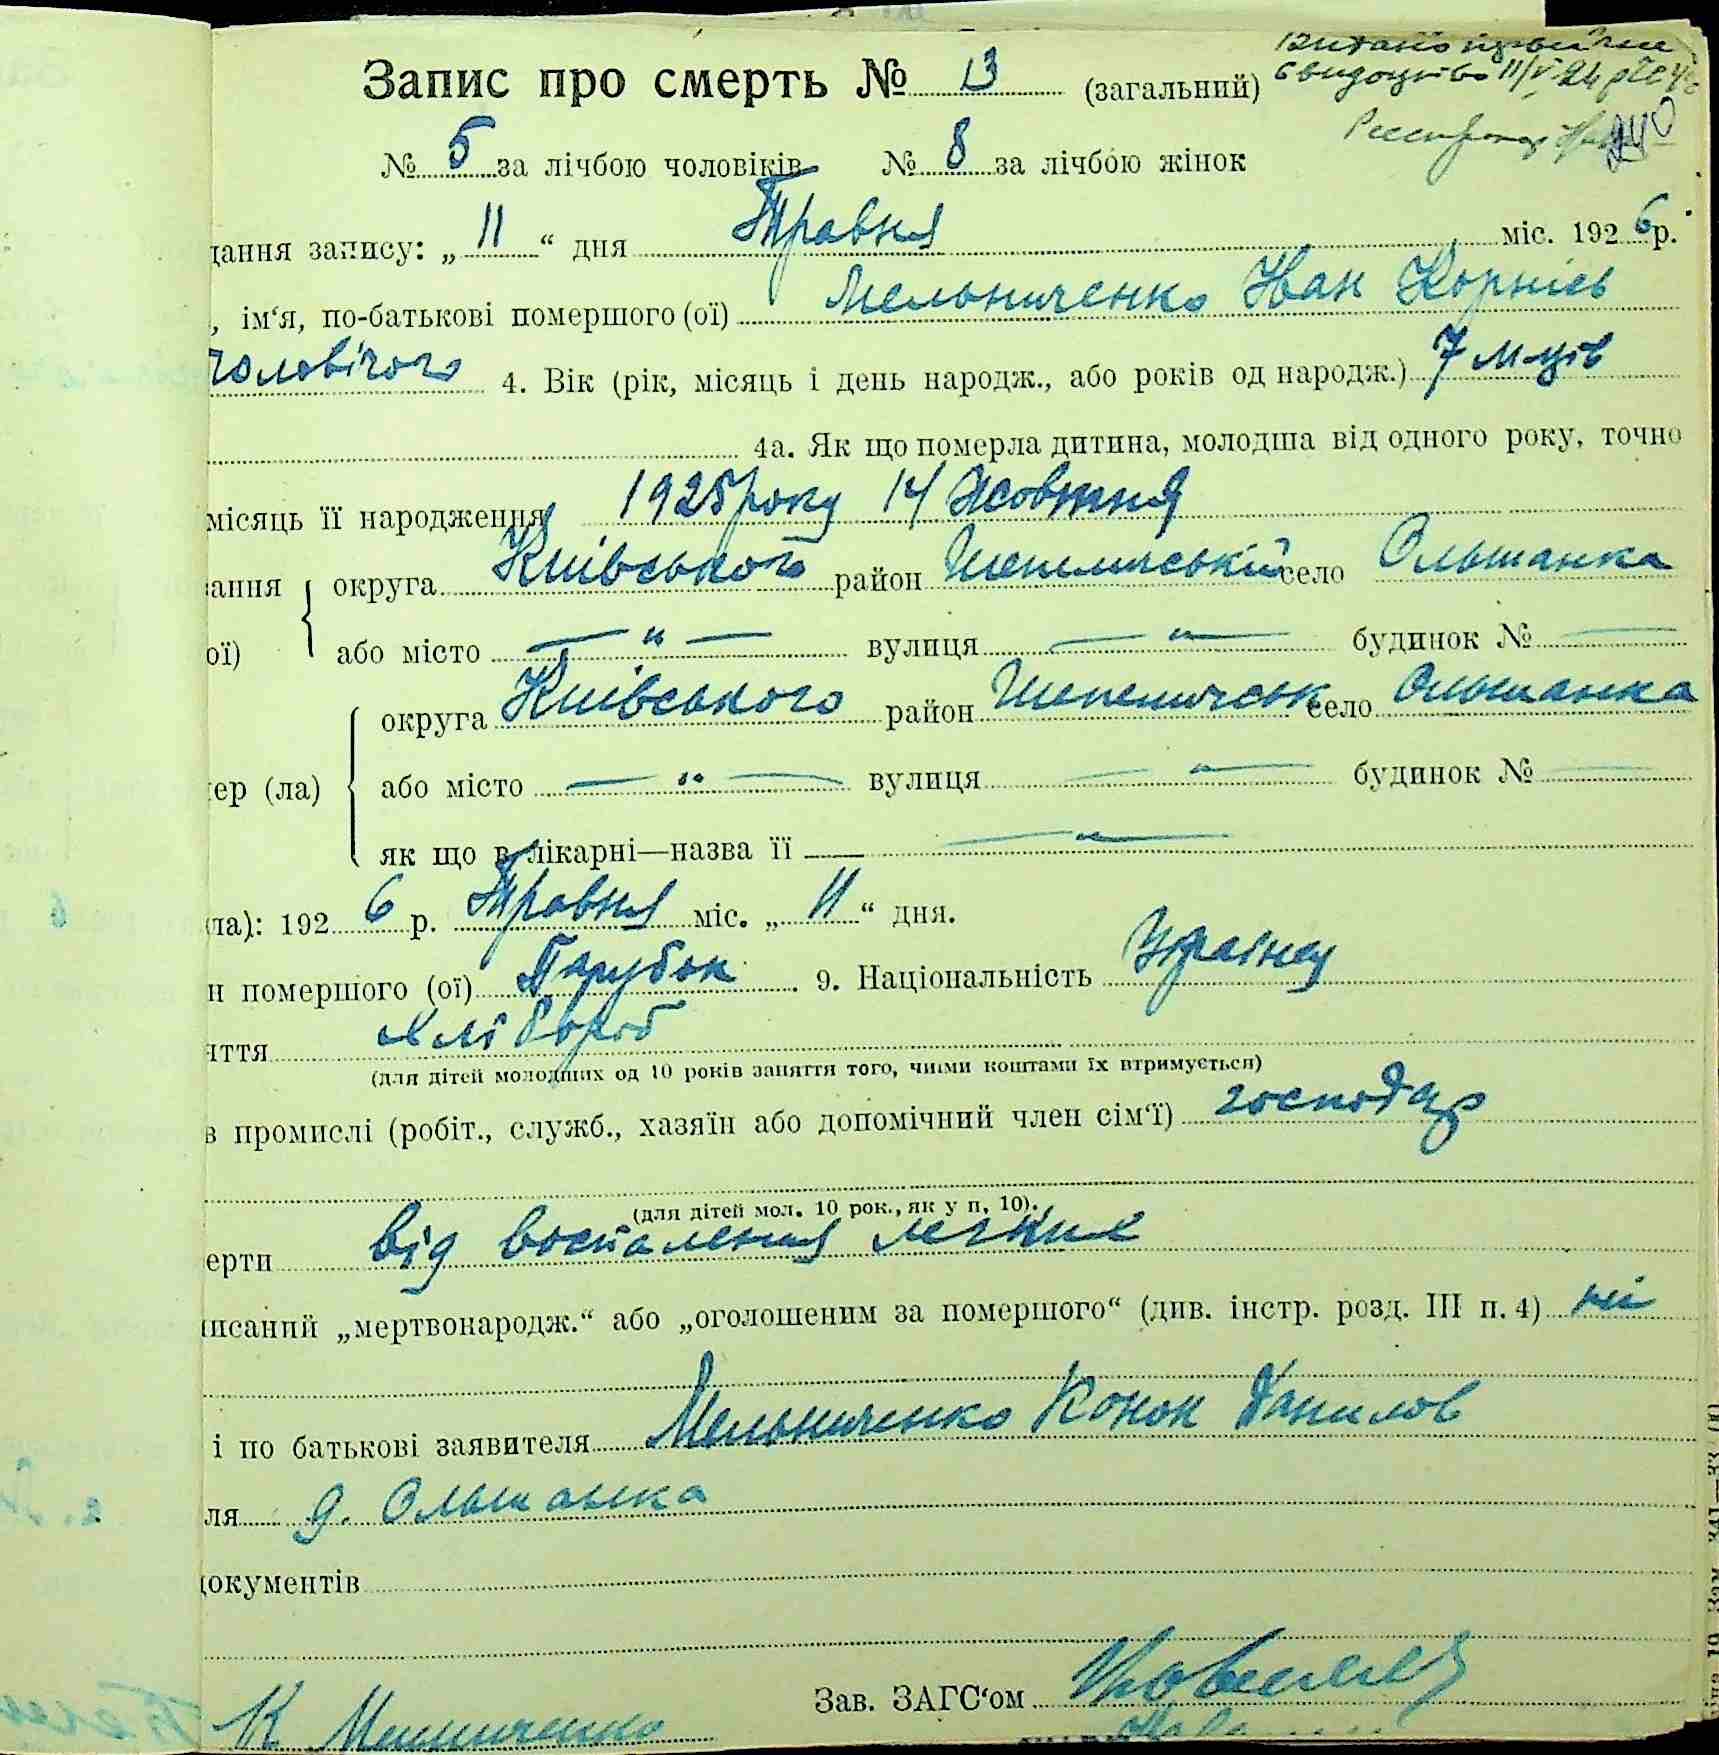 Запис про смерть № 13 (загальний)
№ 5 за лічбою чоловіків № 8 за лічбою жінок
дання запису: „11“ дня Травня міс. 1926 р.
, ім‘я, по-батькові помершого (ої) Мельниченко Іван Корніев
чоловічого 4. Вік (рік, місяць і день народж., або років од народж.) 7 м-ців
4а. Як що померла дитина, молодша від одного року, точно
місяць її народження 1925 року 14 Жовтня
ання округа Київського район село Ольшанка
ої) або місто — " — вулиця — " — будинок № —
округа Київського район село Ольшанка
ер (ла) або місто — " — вулиця — " — будинок № —
як що в лікарні—назва її — " —
ла): 1926 р. Травня міс. „11“ дня.
н помершого (ої) Парубок. 9. Національність Украінец
яття хлібороб
(для дітей молодших од 10 років заняття того, чиїми коштами їх втримується)
в промислі (робіт., служб., хазяїн або допомічний член сім‘ї) господар
(для дітей мол. 10 рок., як у п. 10).
ерти від воспаления легких
исаний „мертвонародж.“ або „оголошеним за помершого“ (див. інстр. розд. III п. 4) ні
і по батькові заявителя Мельниченко Конон Данилов
ля д. Ольшанка
документів
Зав. ЗАГС‘ом
К Мельниченко